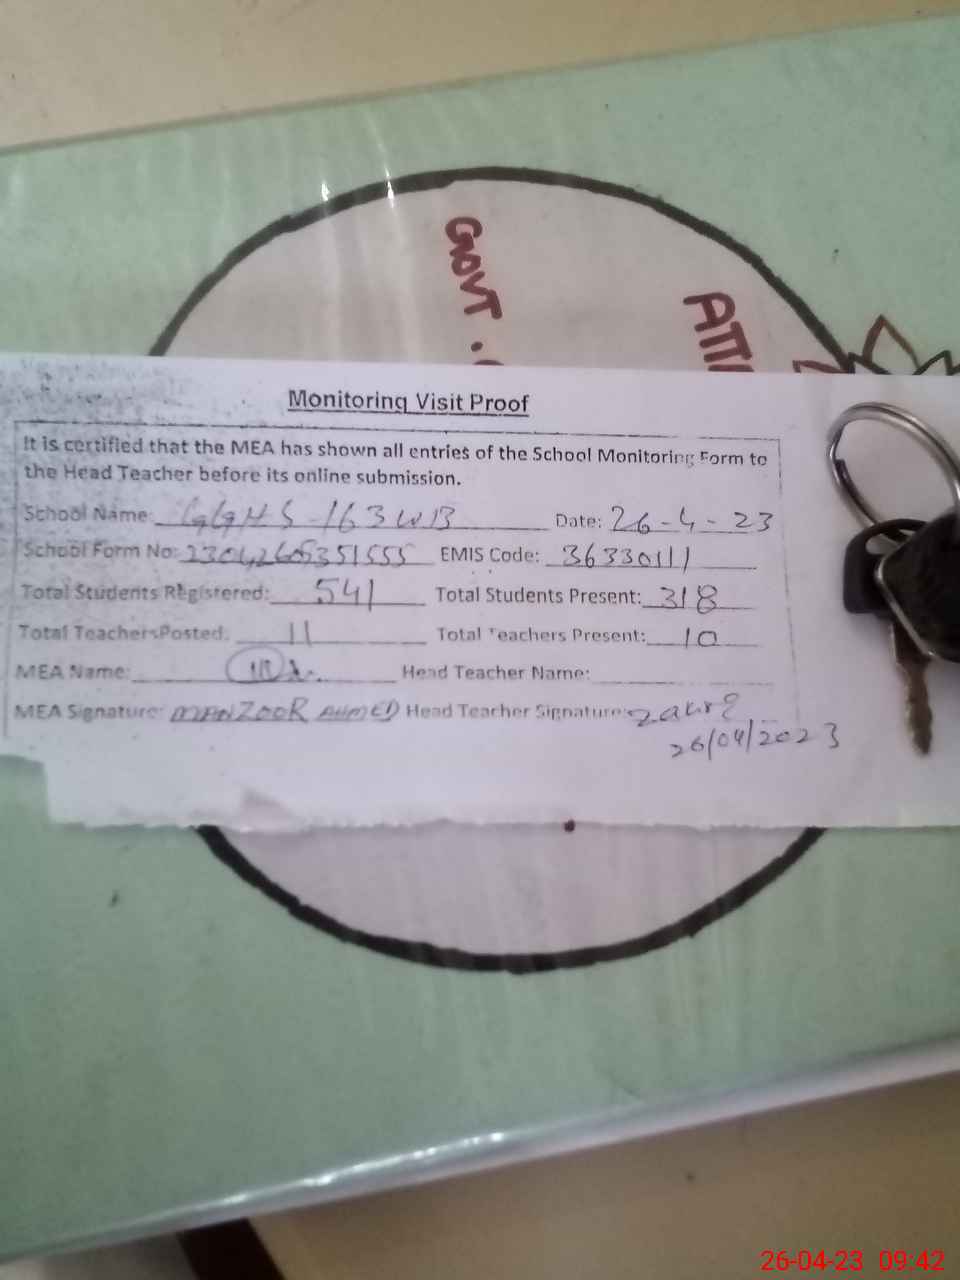 GOVT.
ATT
Monitoring Visit Proof
It is certified that the MEA has shown all entries of the School Monitoring Form to
the Head Teacher before its online submission.
School Name: GGHS-163 WB Date: 26-4-23
School Form No: EMIS Code: 36330111
Total Students Registered: 541 Total Students Present: 318
Total Teachers Posted: 11 Total Teachers Present: 10
MEA Name: Head Teacher Name:
MEA Signature: MANZOOR AHMED Head Teacher Signature:
26/04/2023
26-04-23 09:42